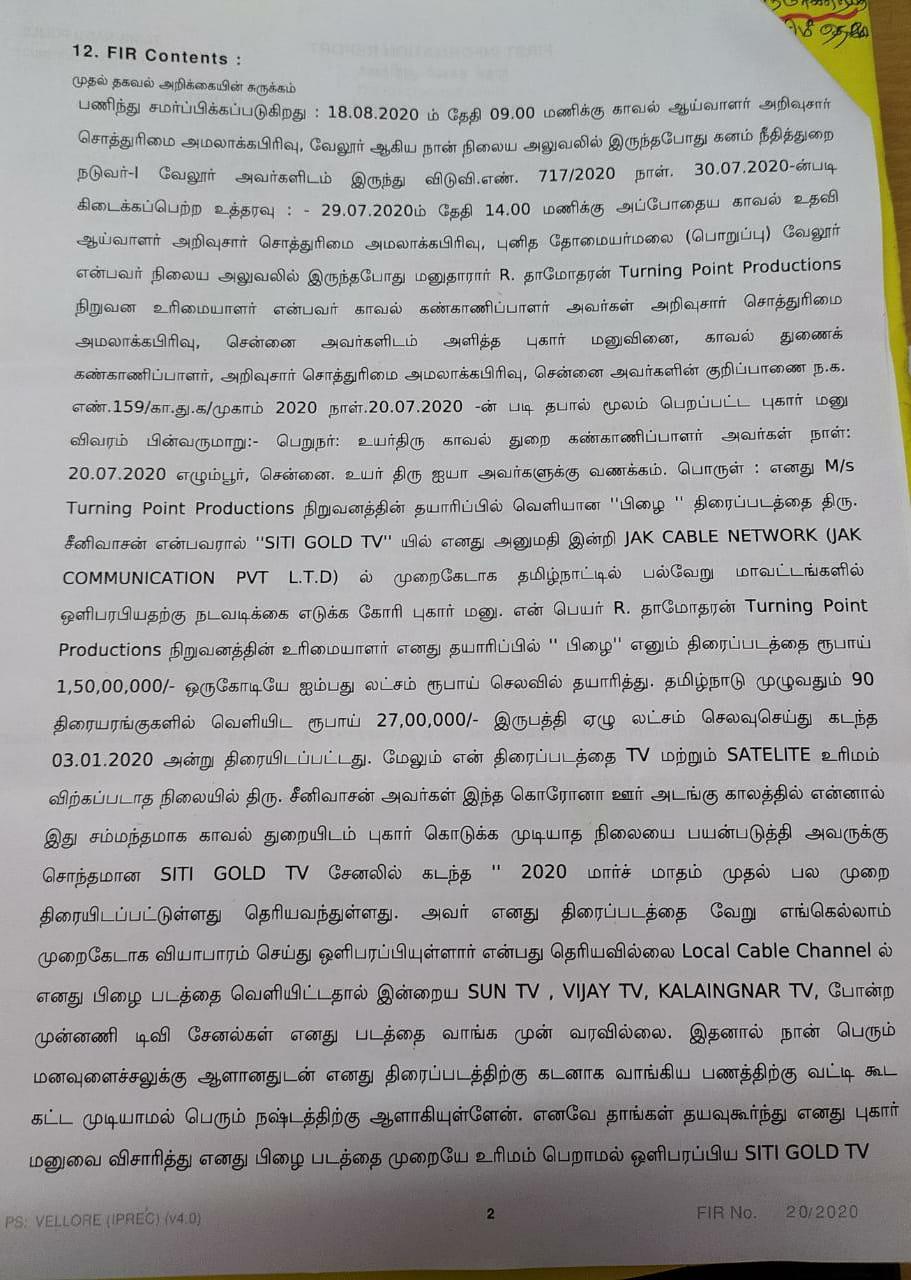 12. FIR Contents :
முதல் தகவல் அறிக்கையின் சுருக்கம்
பணிந்து சமர்ப்பிக்கப்படுகிறது : 18.08.2020 ம் தேதி 09.00 மணிக்கு காவல் ஆய்வாளர் அறிவுசார்
சொத்துரிமை அமலாக்கபிரிவு, வேலூர் ஆகிய நான் நிலைய அலுவலில் இருந்தபோது கனம் நீதித்துறை
நடுவர்-I வேலூர் அவர்களிடம் இருந்து விடுவி.எண். 717/2020 நாள். 30.07.2020-ன்படி
கிடைக்கப்பெற்ற உத்தரவு : - 29.07.2020ம் தேதி 14.00 மணிக்கு அப்போதைய காவல் உதவி
ஆய்வாளர் அறிவுசார் சொத்துரிமை அமலாக்கபிரிவு, புனித தோமையர்மலை (பொறுப்பு) வேலூர்
என்பவர் நிலைய அலுவலில் இருந்தபோது மனுதாரார் R. தாமோதரன் Turning Point Productions
நிறுவன உரிமையாளர் என்பவர் காவல் கண்காணிப்பாளர் அவர்கள் அறிவுசார் சொத்துரிமை
அமலாக்கபிரிவு, சென்னை அவர்களிடம் அளித்த புகார் மனுவினை, காவல் துணைக்
கண்காணிப்பாளர், அறிவுசார் சொத்துரிமை அமலாக்கபிரிவு, சென்னை அவர்களின் குறிப்பாணை ந.க.
எண்.159/கா.து.க/முகாம் 2020 நாள்.20.07.2020 -ன் படி தபால் மூலம் பெறப்பட்ட புகார் மனு
விவரம் பின்வருமாறு:- பெறுநர்: உயர்திரு காவல் துறை கண்காணிப்பாளர் அவர்கள் நாள்:
20.07.2020 எழும்பூர், சென்னை. உயர் திரு ஐயா அவர்களுக்கு வணக்கம். பொருள் : எனது M/s
Turning Point Productions நிறுவனத்தின் தயாரிப்பில் வெளியான "பிழை " திரைப்படத்தை திரு.
சீனிவாசன் என்பவரால் "SITI GOLD TV" யில் எனது அனுமதி இன்றி JAK CABLE NETWORK (JAK
COMMUNICATION PVT L.T.D) ல் முறைகேடாக தமிழ்நாட்டில் பல்வேறு மாவட்டங்களில்
ஒளிபரபியதற்கு நடவடிக்கை எடுக்க கோரி புகார் மனு. என் பெயர் R. தாமோதரன் Turning Point
Productions நிறுவனத்தின் உரிமையாளர் எனது தயாரிப்பில் " பிழை" எனும் திரைப்படத்தை ரூபாய்
1,50,00,000/- ஒருகோடியே ஐம்பது லட்சம் ரூபாய் செலவில் தயாரித்து. தமிழ்நாடு முழுவதும் 90
திரையரங்குகளில் வெளியிட ரூபாய் 27,00,000/- இருபத்தி ஏழு லட்சம் செலவுசெய்து கடந்த
03.01.2020 அன்று திரையிடப்பட்டது. மேலும் என் திரைப்படத்தை TV மற்றும் SATELITE உரிமம்
விற்கப்படாத நிலையில் திரு. சீனிவாசன் அவர்கள் இந்த கொரோனா ஊர் அடங்கு காலத்தில் என்னால்
இது சம்மந்தமாக காவல் துறையிடம் புகார் கொடுக்க முடியாத நிலையை பயன்படுத்தி அவருக்கு
சொந்தமான SITI GOLD TV சேனலில் கடந்த " 2020 மார்ச் மாதம் முதல் பல முறை
திரையிடப்பட்டுள்ளது தெரியவந்துள்ளது. அவர் எனது திரைப்படத்தை வேறு எங்கெல்லாம்
முறைகேடாக வியாபாரம் செய்து ஒளிபரப்பியுள்ளார் என்பது தெரியவில்லை Local Cable Channel ல்
எனது பிழை படத்தை வெளியிட்டதால் இன்றைய SUN TV , VIJAY TV, KALAINGNAR TV, போன்ற
முன்னணி டிவி சேனல்கள் எனது படத்தை வாங்க முன் வரவில்லை. இதனால் நான் பெரும்
மனவுளைச்சலுக்கு ஆளானதுடன் எனது திரைப்படத்திற்கு கடனாக வாங்கிய பணத்திற்கு வட்டி கூட
கட்ட முடியாமல் பெரும் நஷ்டத்திற்கு ஆளாகியுள்ளேன். எனவே தாங்கள் தயவுகூர்ந்து எனது புகார்
மனுவை விசாரித்து எனது பிழை படத்தை முறையே உரிமம் பெறாமல் ஒளிபரப்பிய SITI GOLD TV
PS: VELLORE (IPREC) (v4.0) 2 FIR No. 20/2020